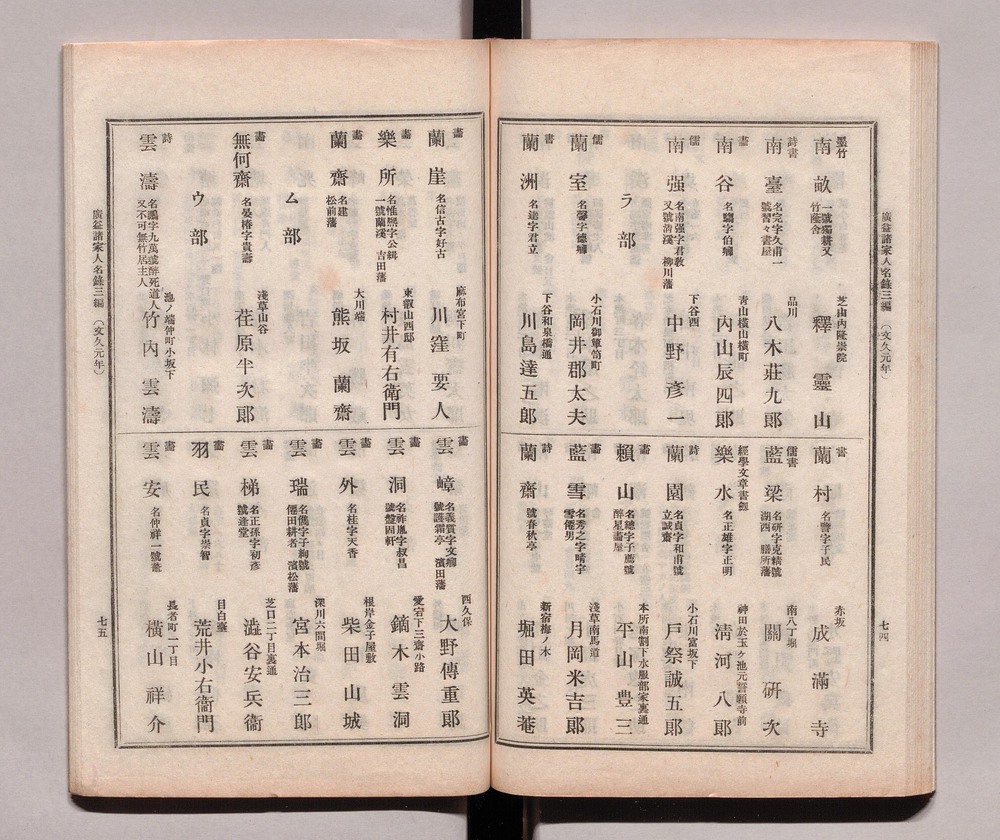 廣益諸家人名錄三編 (文久元年)
七四
墨竹
南畝 一號獨耕又竹蔭舍 芝山內隆崇院 釋靈山
詩書
南臺 名完字久甫一號習々書屋 品川 八木莊九郎
畫
南谷 名驥字伯 靑山橫山橫町 內山辰四郎
儒
南强 名南强字君敎又號淸溪 柳川藩 下谷西 中野彥一
ラ部
儒
蘭室 名馨字德 小石川御簞笥町 岡井郡太夫
書
蘭洲 名達字君立 下谷和泉橋通 川島達五郎
書
蘭村 名字子民 赤坂 成滿寺
儒書
藍梁 名硏字克精號湖西 膳所藩 南八丁堀 關硏次
經學文章書劔
樂水 名正雄字正明 神田於玉ケ池元誓願寺前 淸河八郎
詩
蘭園 名貞字和甫號立誠齋 小石川富坂下 戶祭誠五郎
畫
賴山 名總字子薦號醉星畵屋 本所南割下水服部家裏通 平山豊三
畫
藍雪 名秀之字晴字雪僊男 淺草南馬道 月岡米吉郎
詩
蘭齋 號春秋亭 新宿梅ノ木 堀田英菴
畫
蘭崖 名信古字好古 麻布宮下町 川窪要人
畫
樂所 名惟熙字公緝一號蘭溪 吉田藩 東叡山西邸 村井有右衛門
畫
蘭齋 名建 松前藩 大川端 熊坂蘭齋
ム部
畫
無何齋 名晏椿字貴壽 淺草山谷 荏原半次郎
ウ部
詩
雲濤 名鵬字九萬號醉死道人又不可無竹居主人 池ノ端仲町小坂下 竹內雲濤
畫
雲嶂 名義質字文號護霜亭 濱田藩 西久保 大野傳重郎
畫
雲洞 名祚胤字叔昌號盤固軒 愛宕下三齋小路 鏑木雲洞
畫
雲外 名桂字天香 根岸金子屋敷 柴田山城
畫
雲瑞 名僊字子絢號僊田耕者 濱松藩 深川六間堀 宮本治三郎
畫
雲梯 名正孫字初彥號逢堂 芝口二丁目裏通 澁谷安兵衞
畫
羽民 名貞字崇智 目白臺 荒井小右衞門
畫
雲安 名仲祥一號 長者町一丁目 橫山祥介
廣益諸家人名錄三編 (文久元年)
七五